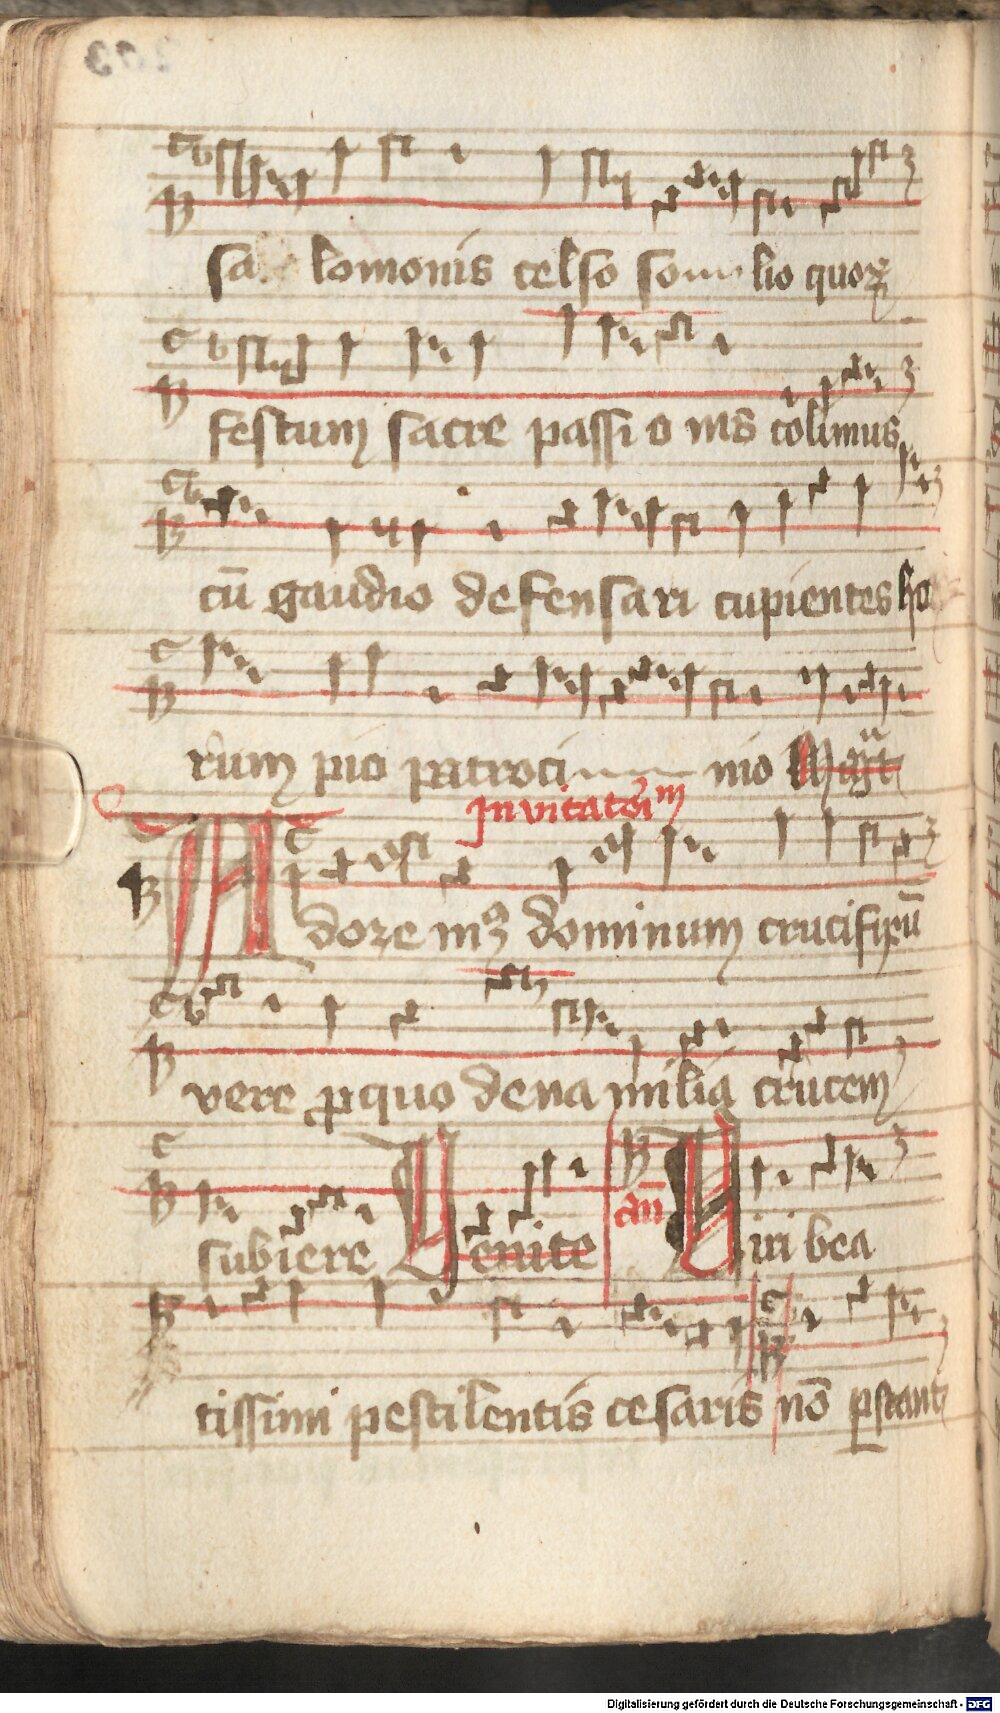 sa lomonis celso so lio quoꝝ
festum sacre passi o nis colimus
cū gaudio defensari cupientes ho
rum pio patroci nio Magt
Invitatorim
Adore mꝰ dominum crucifixū
vere ꝓ quo dena milia crucem
subiere Venite an Viri bea
tissimi pestilentis cesaris nō ꝑstant
Digitalisierung gefördert durch die Deutsche Forschungsgemeinschaft - DFG